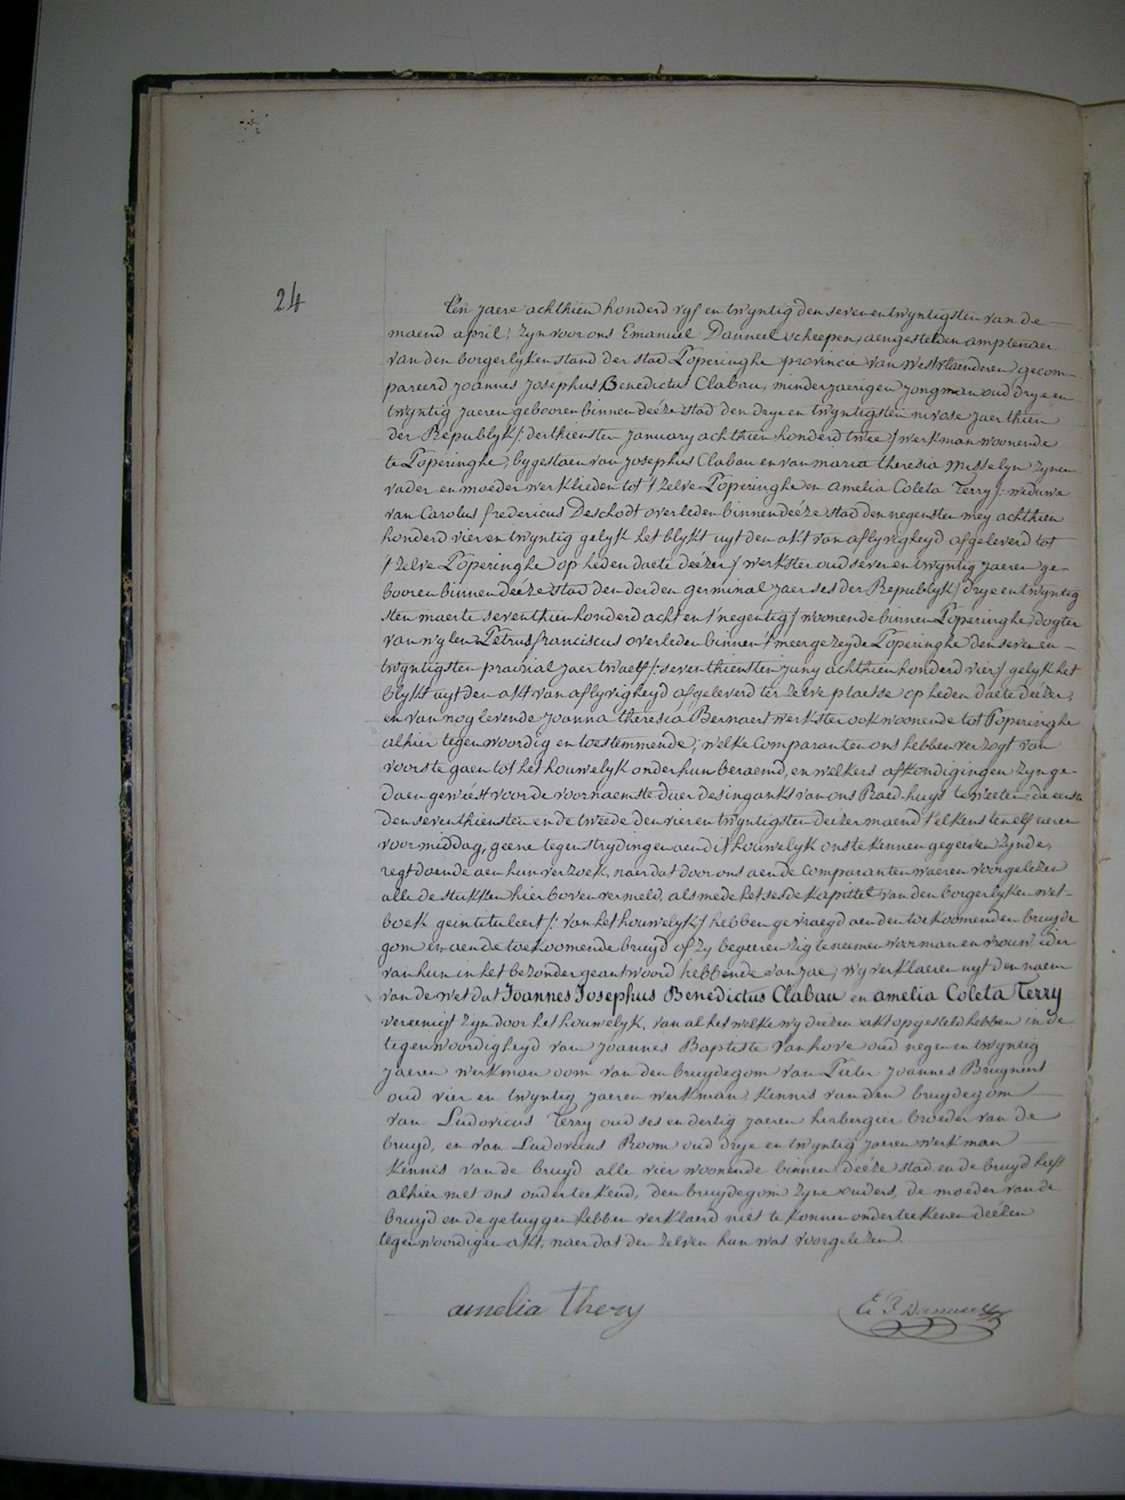 24
Ten jaere achthien honderd vyf en twyntig den seven en twyntigsten van de
maend april, zyn voor ons Emanuel Danneel scheepen, aengestelden amptenaer
van den borgerlyken stand der stad Poperinghe provincie van Westvlaenderen gecom-
pareerd Joannes Josephus Benedictus Clabau, minderjaerigen jongman oud drye en
twyntig jaeren gebooren binnen deéze stad den drye en twyntigsten nivose jaer thien
der Republyk /: derthiensten January achthien honderd twee / werkman woonende
te Poperinghe, bygestaen van Josephus Clabau en van maria theresia Misselyn zynen
vader en moeder werklieden tot t zelve Poperinghe en amelia Coleta Terry /: weduwe
van Carolus fredericus Deschodt overleden binnen deéze stad den negensten mey achthien
honderd vier en twyntig gelyk het blykt uyt den akt van aflyvigheyd afgeleverd tot
t zelve Poperinghe op heden daete deézer / werkster oud seven en twyntig jaeren ge-
booren binnen deéze stad den derden germinal jaer ses der Republyk / drye en twyntig
sten maerte seventhien honderd acht en t'negentig / woonende binnen Poperinghe, dogter
van wylen Petrus franciscus overleden binnen 't meergezeyde Poperinghe den seven en -
twyntigsten prairial jaer twaelf /: seventhiensten juny achthien honderd vier / gelyk het
blykt uyt den akt van aflyvigheyd afgeleverd ter zelve plaetse op heden daete deézer,
en van nog levende Joanna theresia Bernaert werkster ook woonende tot Poperinghe
alhier tegenwoordig en toestemmende; welke Comparanten ons hebben verzogt van
voorste gaen tot het houwelyk onder hun beraemd, en welkers afkondigingen zyn ge-
daen gewéést voor de voornaemste duer des inganks van ons Raed-huys te weeten: de eerste
den seventhiensten en de tweede den vier en twyntigsten deézer maend t'elkens ten elf ueren
voormiddag, geene tegenstrydingen aen dit houwelyk ons te kennen gegeéven zynde,
regt doende aen hun verzoek, naer dat door ons aen de Comparanten waeren voorgelezen
alle de stukken hier boven vermeld, als mede het sesde kapittel van den borgerlyken wet-
boek geintituleert /: van het houwelyk / hebben gevraegd aen den toekoomenden bruyde
gom en aen de toekoomende bruyd of zy begeeren zig te neemen voor man en vrouw ider
van hun in het bezonder geantwoord hebbende van jae; wy verklaeren uyt den naem
van de wet dat Joannes Josephus Benedictus Clabau en amelia Coleta Terry
vereenigt zyn door het houwelyk, van al het welke wy deézen akt opgesteld hebben in de
tegenwoordigheyd van Joannes Baptiste Vanhove oud negen en twyntig
jaeren werkman oom van den bruydegom van Pieter Joannes
oud vier en twyntig jaeren werkman, kennis van den bruydegom
van Ludovicus Terry oud ses en dertig jaeren herbergier broeder van de
bruyd, en van Ludovicus Room oud drye en twyntig jaeren werkman
kennis van de bruyd alle vier woonende binnen deéze stad en de bruyd heeft
alhier met ons onderteekend, den bruydegom zyne ouders, de moeder van de
bruyd en de getuygen hebben verklaerd niet te konnen onderteekenen deézen
tegenwoordigen akt, naer dat den zelven hun was voorgelezen.
amelia thery